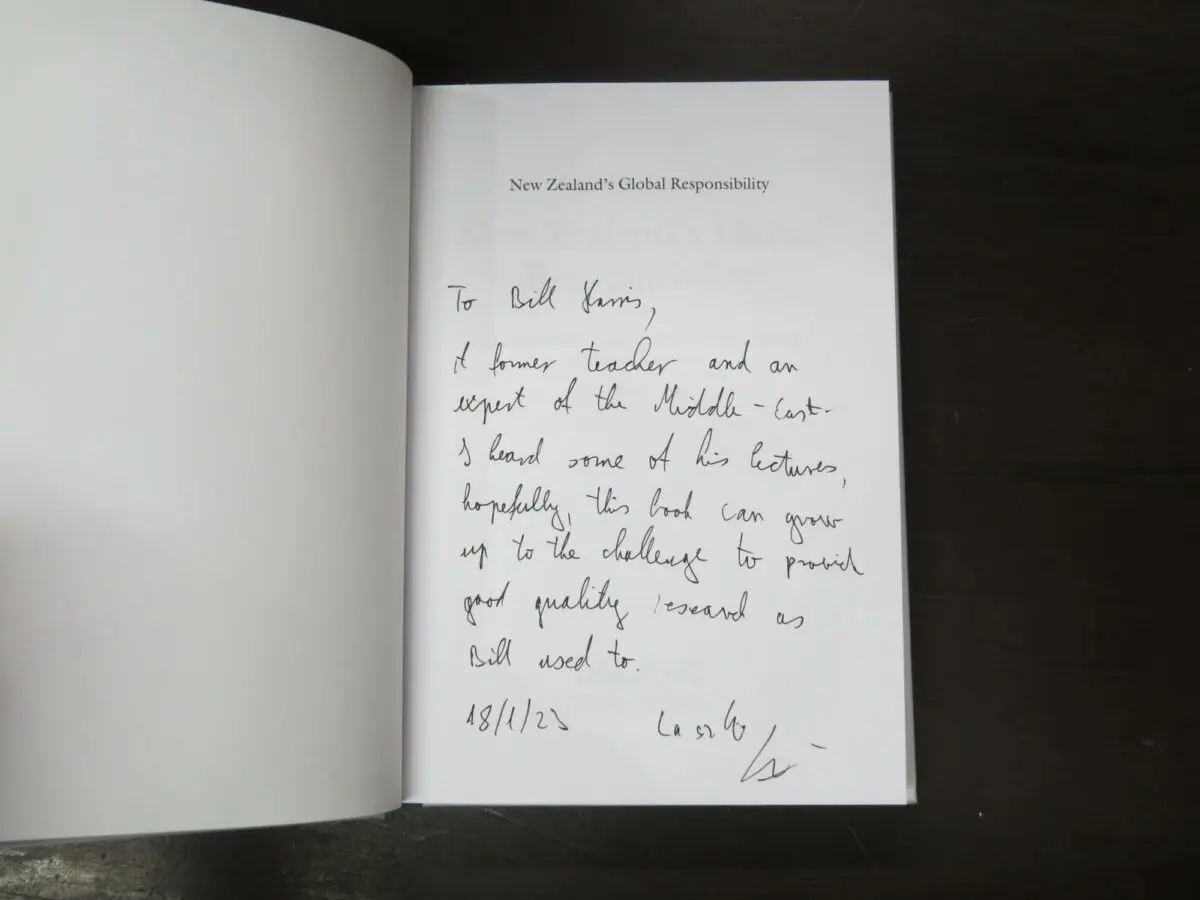 New Zealand's Global Responsibility
To Bill Harris,
A former teacher and an
expert of the Middle-East-
I heard some of his lectures,
hopefully, this book can grow
up to the challenge to provid
good quality research as
Bill used to.
18/1/23 Laszlo